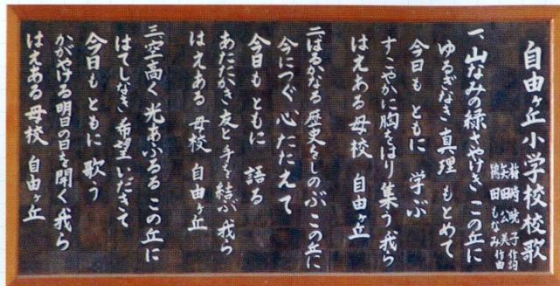 自由ヶ丘小学校校歌
一、山なみの緑さやけき この丘に
ゆるぎなき 真理 もとめて
今日も ともに 学ぶ
すこやかに胸をはり 集う我ら
はえある 母校 自由ヶ丘
二、はるかなる 歴史をしのぶ この丘に
今につぐ 心たたえて
今日も ともに 語る
あたたかき友と手を結ぶ 我ら
はえある 母校 自由ヶ丘
三、空高く 光あふるる この丘に
はてしなき 希望 いだきて
今日も ともに 歌う
かがやける明日の日を開く 我ら
はえある 母校 自由ヶ丘